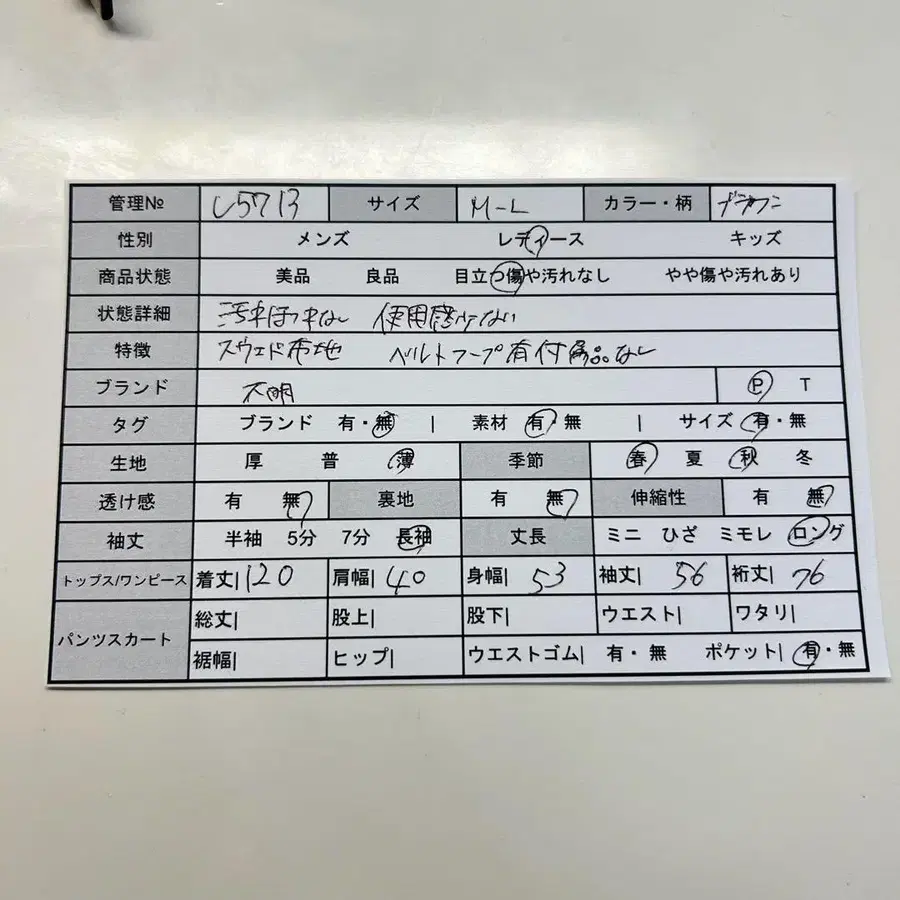 管理№ し5713 サイズ M-L カラー・柄 ブラウン
性別 メンズ レディース キッズ
商品状態 美品 良品 目立つ傷や汚れなし やや傷や汚れあり
状態詳細 汚れほつれなし 使用感少ない
特徴 スウェド布地 ベルトループ有付属品なし
ブランド 不明 P T
タグ ブランド 有・無 | 素材 有・無 | サイズ 有・無
生地 厚 普 薄 季節 春 夏 秋 冬
透け感 有 無 裏地 有 無 伸縮性 有 無
袖丈 半袖 5分 7分 長袖 丈長 ミニ ひざ ミモレ ロング
トップス/ワンピース 着丈| 120 肩幅| 40 身幅| 53 袖丈| 56 裄丈| 76
パンツスカート 総丈| 股上| 股下| ウエスト| ワタリ|
裾幅| ヒップ| ウエストゴム| 有・無 ポケット| 有・無